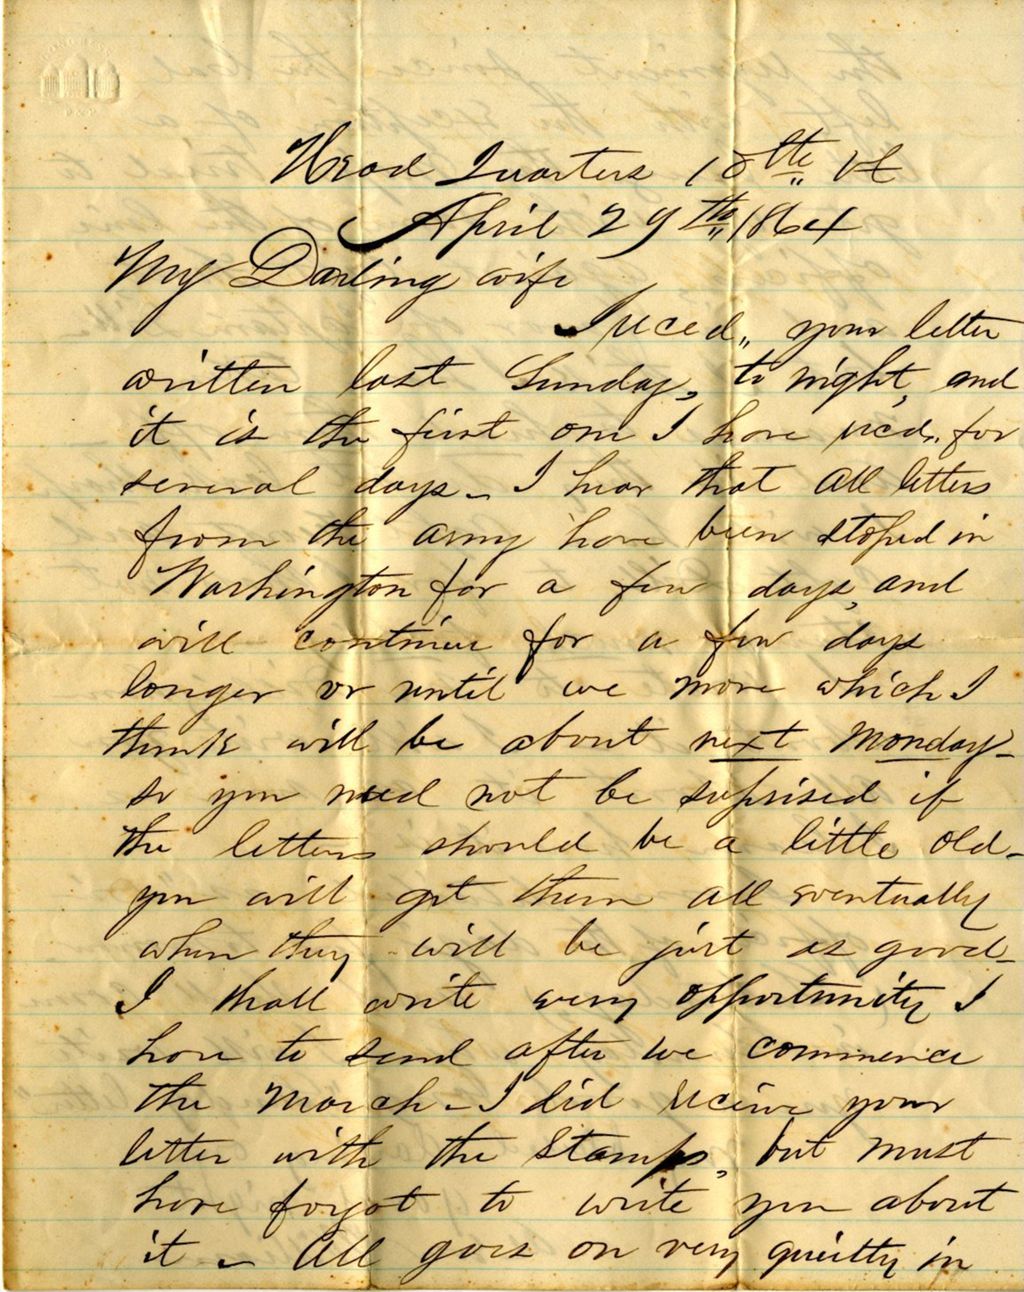 Head Quarters 10th Vt
April 29th 1864
My Darling wife
I reced,, your letter
written last Sunday, to night, and
it is the first one I have recd,, for
several days - I hear that all letters
from the army have been stoped in
Washington for a few days, and
will continue for a few days
longer or until we move which I
think will be about next Monday -
so you need not be suprised if
the letters should be a little old -
you will get them all eventually
when they will be just as good -
I shall write every opportunity I
have to send after we commence
the March - I did receive your
letter with the Stamps, but must
have forgot to write you about
it - All goes on very quietly in